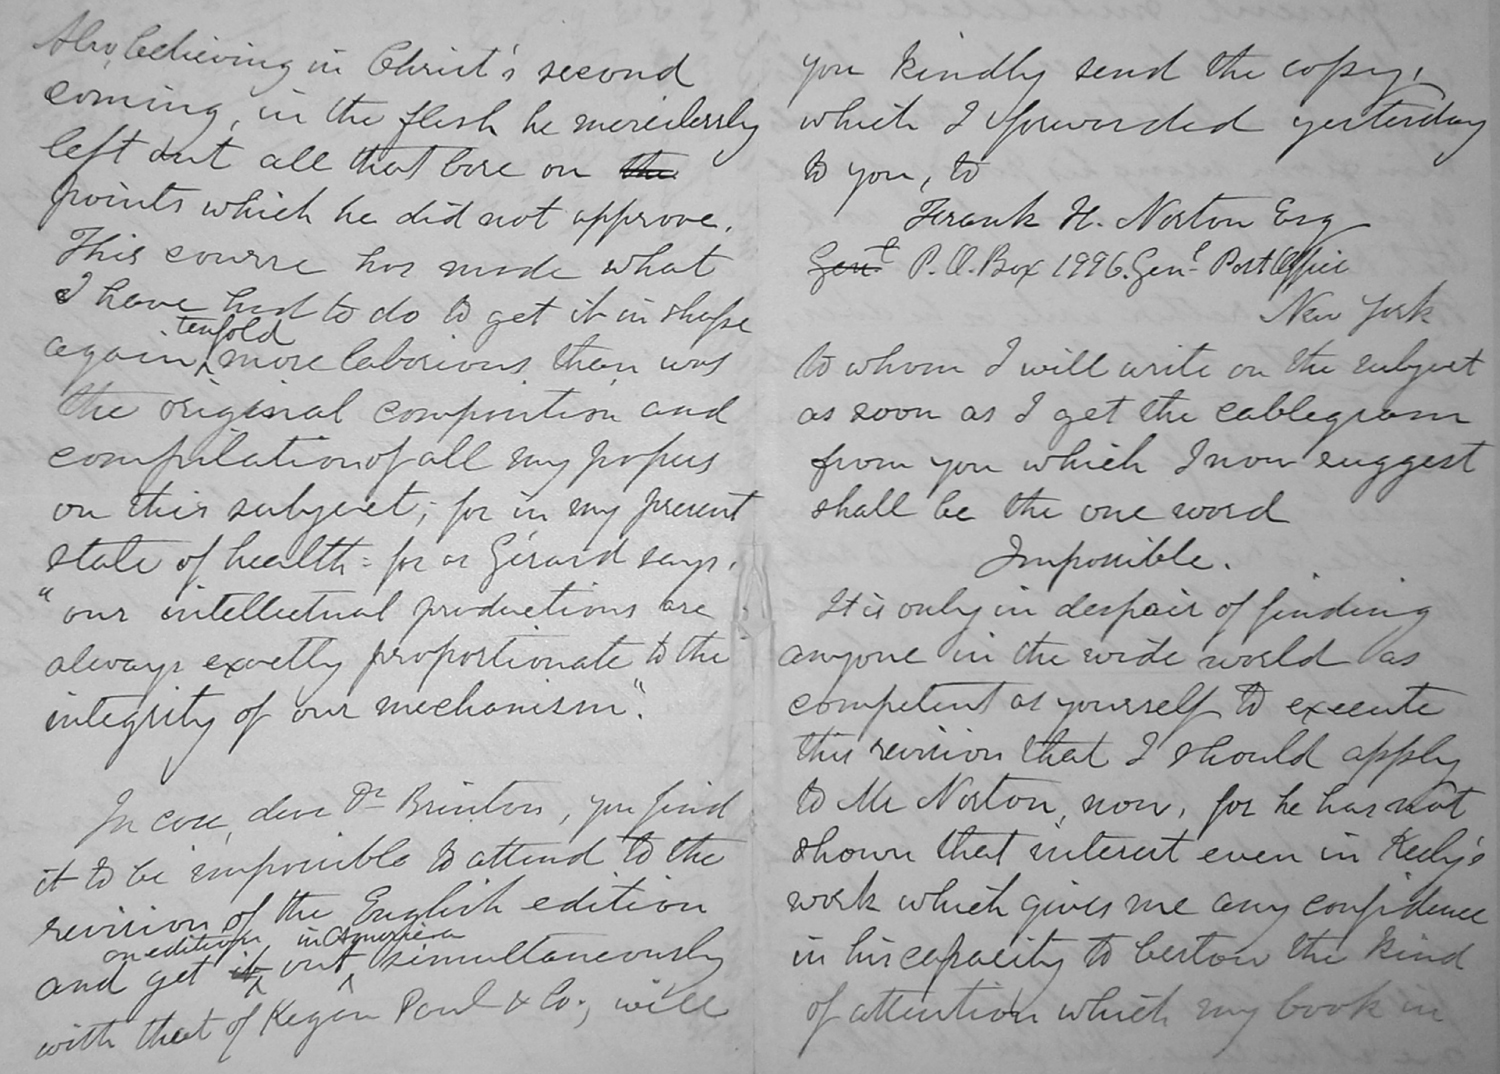 Also, believing in Christ's second
coming, in the flesh he mercilessly
left out all that bore on the
points which he did not approve.
This course has made what
I have had to do to get it in shape
tenfold
again, more laborious than was
the original composition and
compilation of all my papers
on this subject; for in my present
state of health - for as Gérard says,
"our intellectual productions are
always exactly proportionate to the
integrity of our mechanism".
In case, dear Dr Brinton, you find
it to be impossible to attend to the
revision of the English edition
an edition, in America
and get it out simultaneously
with that of Kegan Paul & Co; will
you kindly send the copy,
which I forwarded yesterday
to you, to
Frank H. Norton Esq
Gent P.O. Box 1996. Genl Post Office
New York
to whom I will write on the subject
as soon as I get the cablegram
from you which I now suggest
shall be the one word
Impossible.
It is only in despair of finding
anyone in the wide world as
competent as yourself to execute
this revision that I should apply
to Mr Norton, now, for he has not
shown that interest even in Keely's
work which gives me any confidence
in his capacity to bestow the kind
of attention which my book in